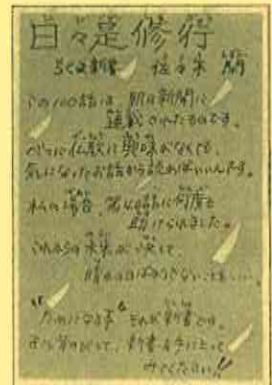 日々是修行
ちくま新書 佐々木 閑
この100話は、朝日新聞に
連載されたものです。
べつに仏教に興味がなくても、
気になったお話から読めばいいんです。
私の場合、第40話に何度も
助けられました。
これからの未来が決して、
晴の日ばかりでない
"ためになる事" それが新書です。
新書を手にとって
みてください!!